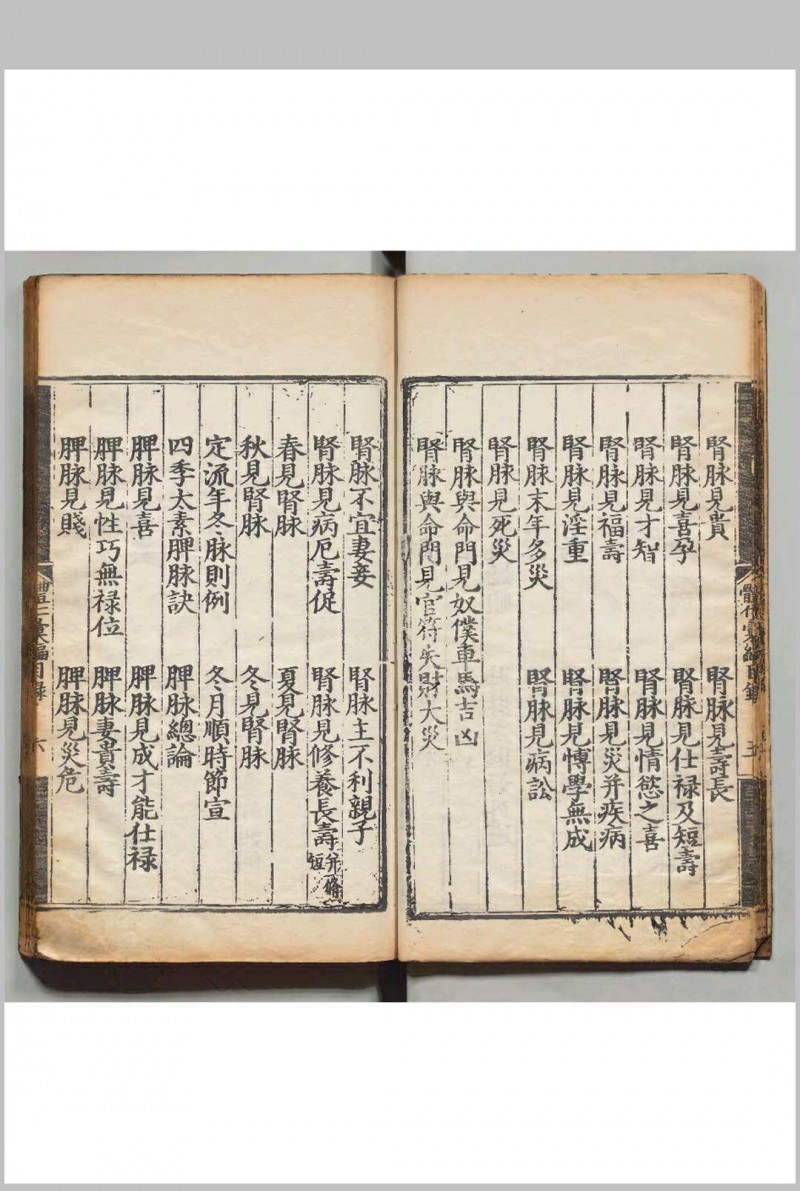 腎脉見貴　腎脉見壽長
腎脉見喜孕　腎脉見仕禄及短壽
腎脉見才智　腎脉見情慾之喜
腎脉見福壽　腎脉見災并疾病
腎脉見淫重　腎脉見博學無成
腎脉末年多災　腎脉見病訟
腎脉見死災
腎脉與命門見奴僕車馬吉凶
腎脉與命門見官符失財大災
腎脉不宜妻妾　腎脉主不利親子
腎脉見病厄壽促　腎脉見修養長壽并脩短
春見腎脉　夏見腎脉
秋見腎脉　冬見腎脉
定流年冬脉則例　冬月順時節宣
四季太素脾脉訣　脾脉總論
脾脉見喜　脾脉見成才能仕禄
脾脉見性巧無禄位　脾脉妻貴壽
脾脉見賤　脾脉見災危
彙編目録　六